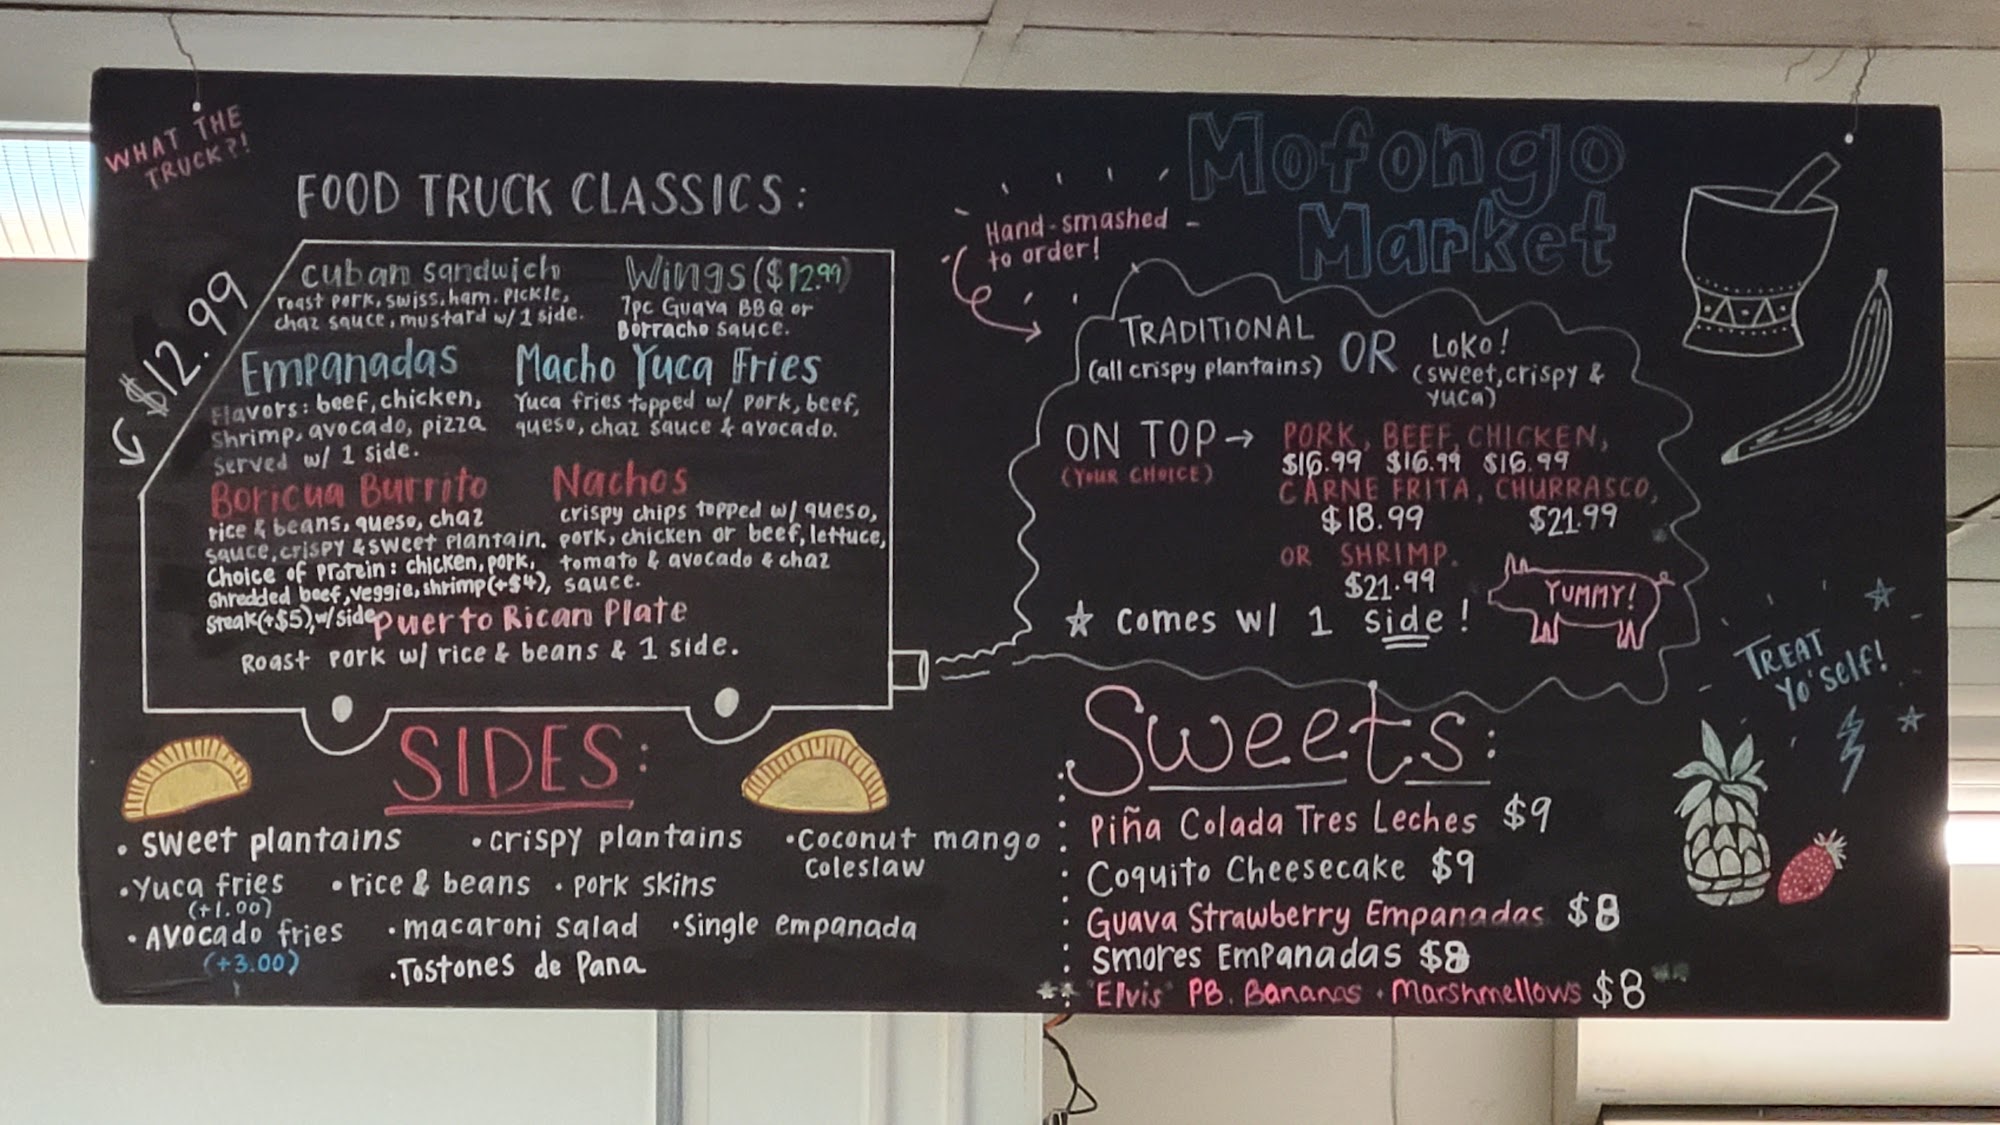 WHAT THE
TRUCK?!
FOOD TRUCK CLASSICS:
$12.99
Cuban sandwich
roast pork, swiss, ham, pickle,
chaz sauce, mustard w/ 1 side.
Wings ($12.99)
7pc Guava BBQ or
Borracho sauce.
Empanadas
Flavors: beef, chicken,
shrimp, avocado, pizza
served w/ 1 side.
Macho Yuca Fries
Yuca fries topped w/ pork, beef,
queso, chaz sauce & avocado.
Boricua Burrito
rice & beans, queso, chaz
sauce, crispy & sweet plantain.
Choice of protein: chicken, pork,
shredded beef, veggie, shrimp (+$4),
steak (+$5), w/ side
Nachos
crispy chips topped w/ queso,
pork, chicken or beef, lettuce,
tomato & avocado & chaz
sauce.
Puerto Rican Plate
Roast pork w/ rice & beans & 1 side.
SIDES:
• sweet plantains • crispy plantains • Coconut mango
Coleslaw
• Yuca fries • rice & beans • pork skins
(+1.00)
• Avocado fries • macaroni salad • Single empanada
(+3.00)
• Tostones de Pana
Mofongo
Market
Hand-smashed
to order!
TRADITIONAL
(all crispy plantains)
OR
Loko!
(sweet, crispy &
yuca)
ON TOP →
(YOUR CHOICE)
PORK, BEEF, CHICKEN,
$16.99 $16.99 $16.99
CARNE FRITA, CHURRASCO,
$18.99 $21.99
OR SHRIMP.
$21.99
☆ comes w/ 1 side!
YUMMY!
TREAT
Yo'self!
Sweets:
Piña Colada Tres Leches $9
Coquito Cheesecake $9
Guava Strawberry Empanadas $8
Smores Empanadas $8
** "Elvis" PB. Bananas • Marshmellows $8